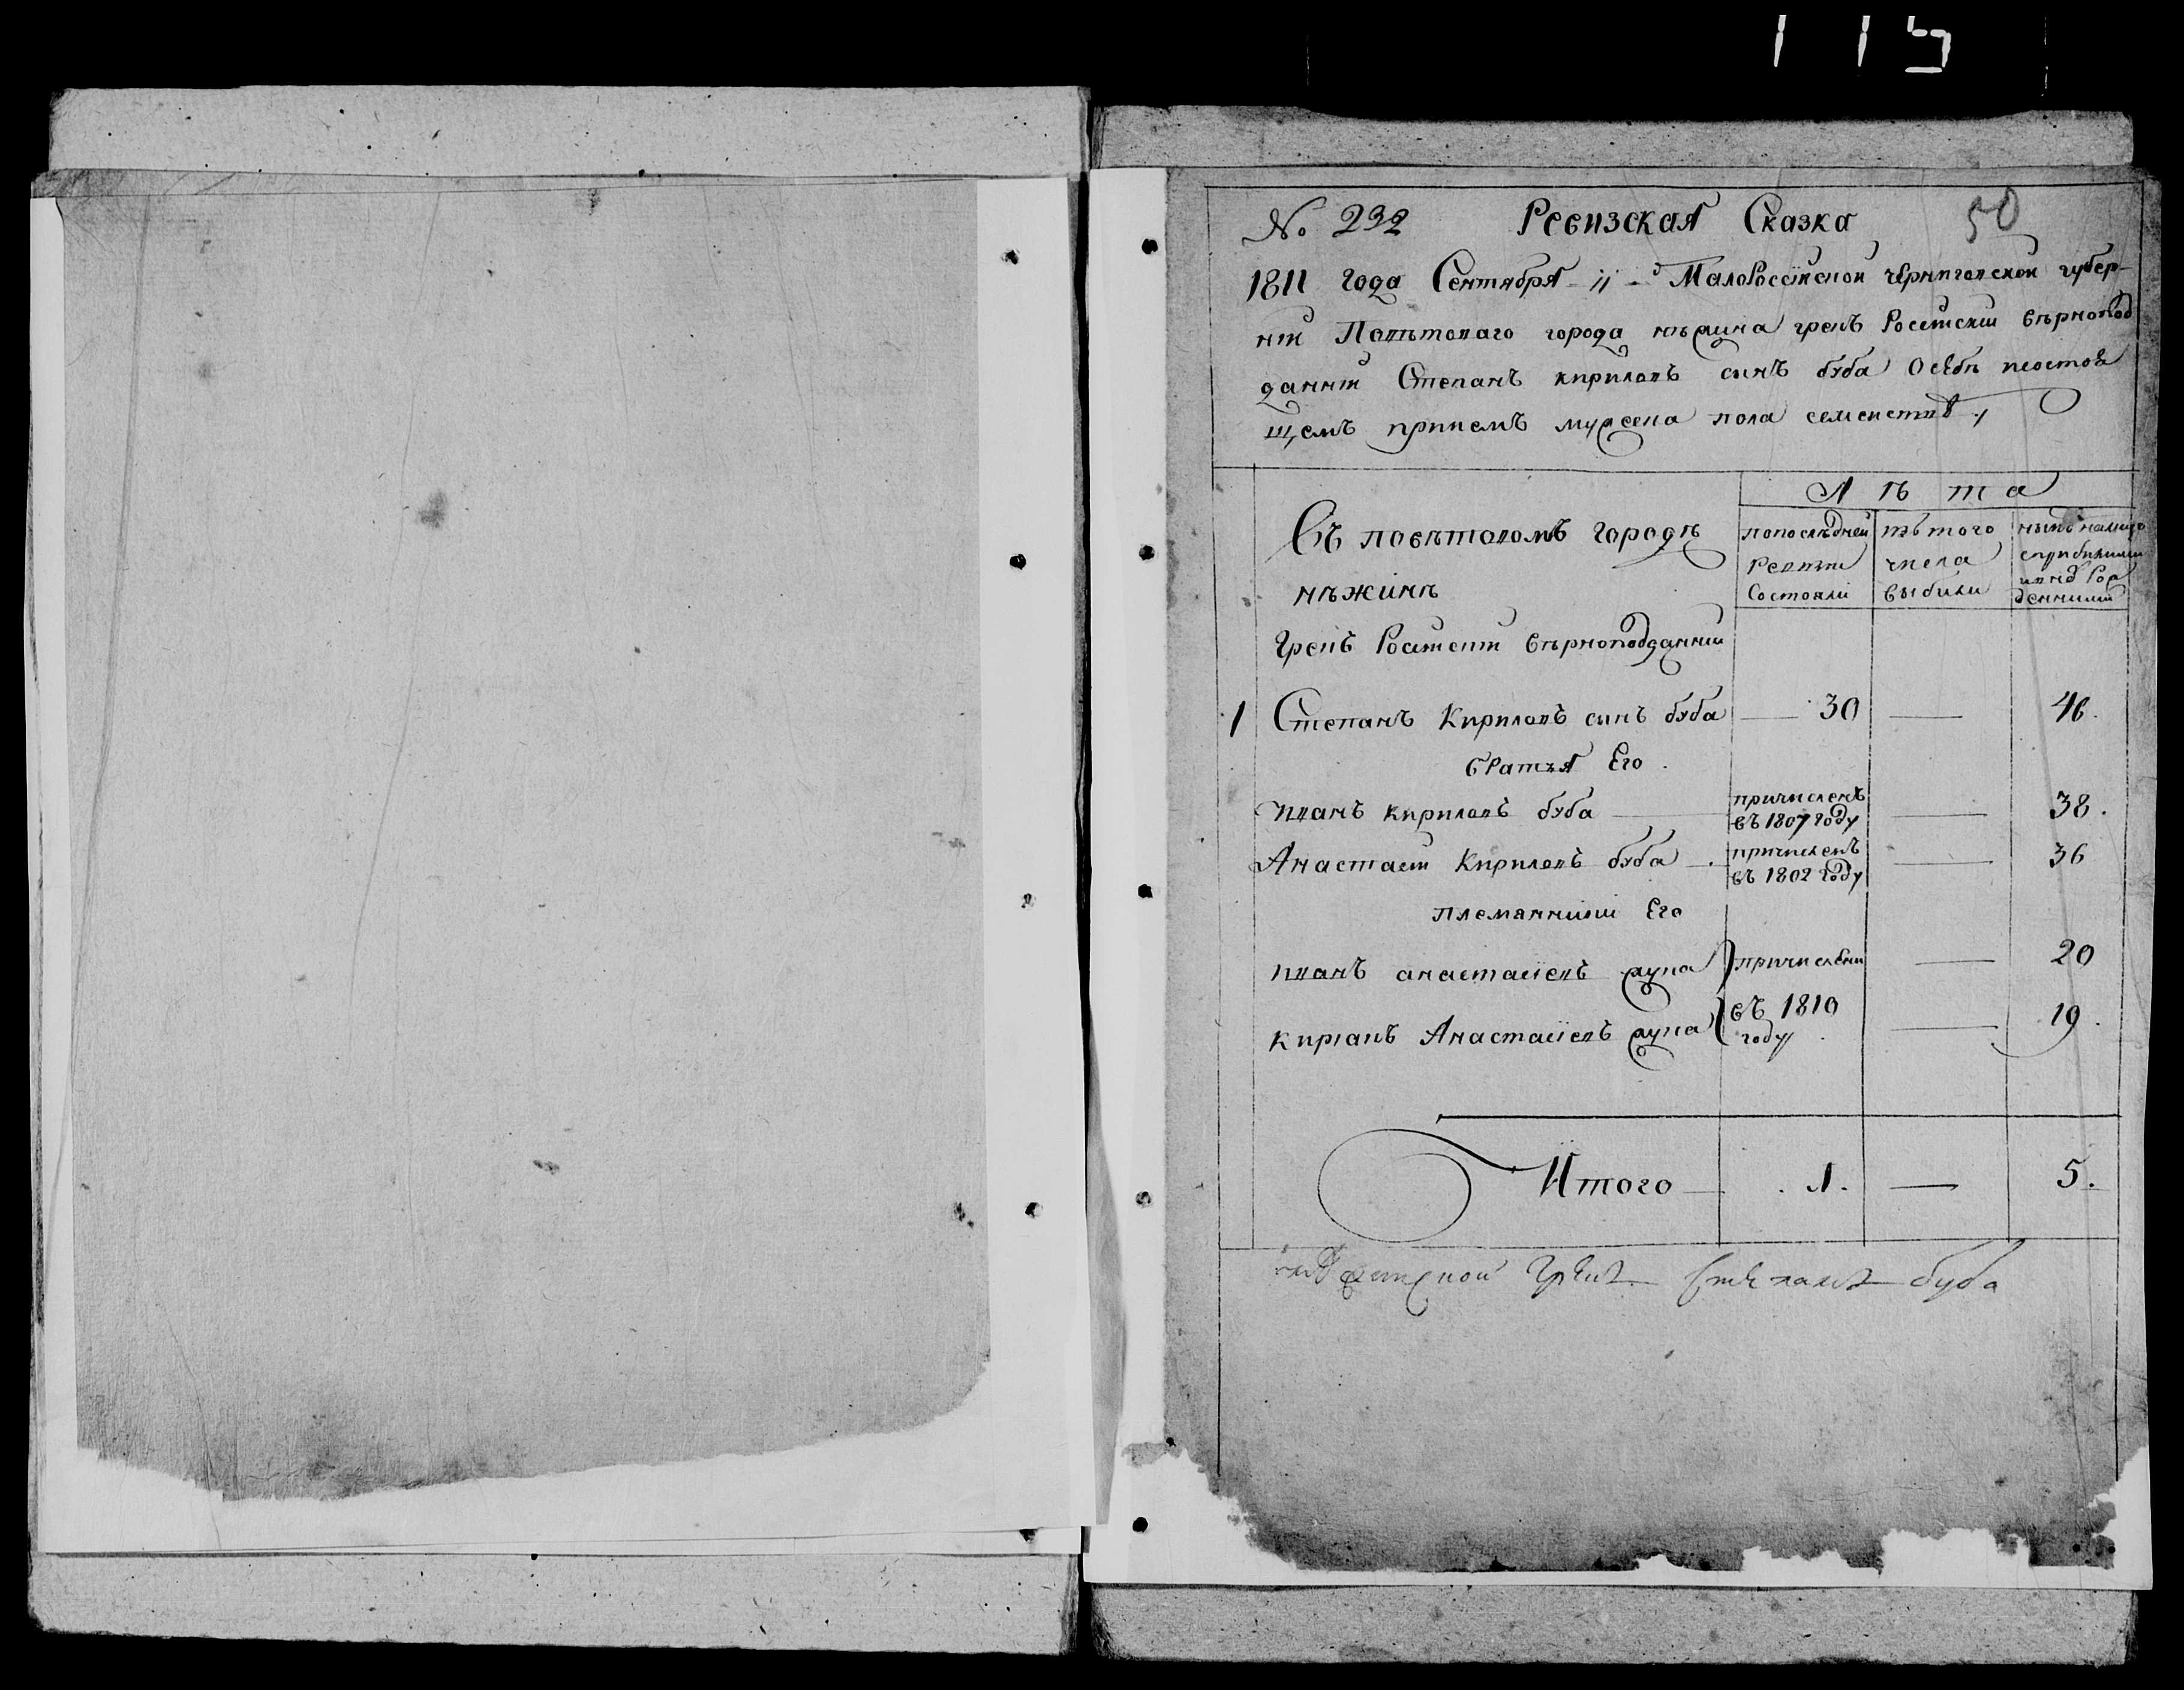 115
50
№ 232 Ревизская Сказка
1811 года Сентября 11 МалоРоссійской чЕрниговской губер-
ніи Повѣтоваго города нѣжина грекъ Россійскій вѣрнопод
данній Степанъ кирилов синъ буба О сЕбѣ и состоя
щемъ при немъ мужеска пола семействѣ
Лѣта
Въ повѣтовомъ городѣ
нѣжинѣ
по последней ревизіи Состояли
изъ того числа выбили
нынѣ на лицо
Грекъ Російскій вѣрноподданній
1 Степанъ Кириловъ синъ буба 30 — 46.
бРатья Его
иванъ кириловъ буба причисленъ въ 1807 году — 38.
Анастасій Кириловъ буба причисленъ въ 1802 году — 36
племянники Его
иванъ анастасіевъ жупа причислены — 20
киріакъ Анастасіевъ жупа въ 1810 году — 19.
Итого 1. — 5.
буба